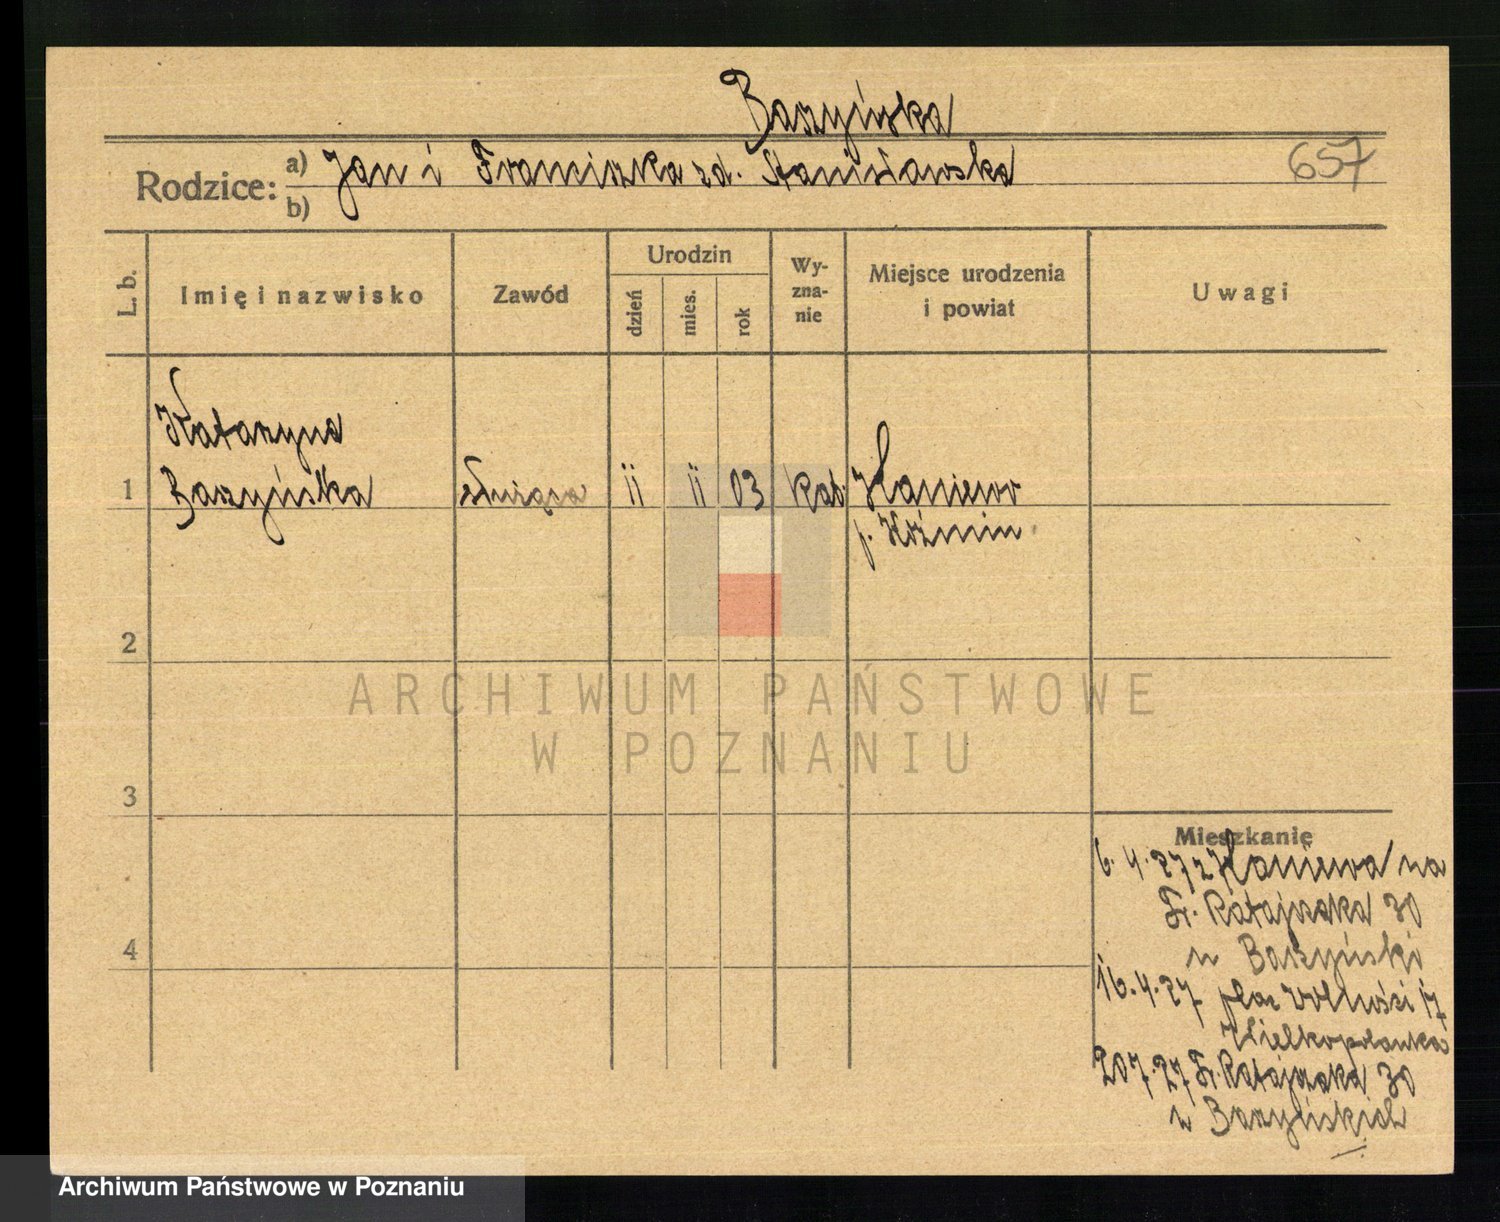 Baszyńska
Rodzice: a) Jan i Franciszka zd. Stanisławska
b)
657
L. b.
Imię i nazwisko
Zawód
Urodzin
dzień
mies.
rok
Wy-
zna-
nie
Miejsce urodzenia
i powiat
Uwagi
Katarzyna
1 Baszyńska służąca 11 11 03 kat. Haniewo
p. Koźmin
2
ARCHIWUM PAŃSTWOWE
W POZNANIU
3
Mieszkanie
6.4.27 z Haniewa na
Fr. Ratajczaka 30
u Baszyński
4
16.4.27 plac Wolności 17
Wielkopolanka
20 7.27 Fr. Ratajczaka 30
u Baszyńskich
Archiwum Państwowe w Poznaniu